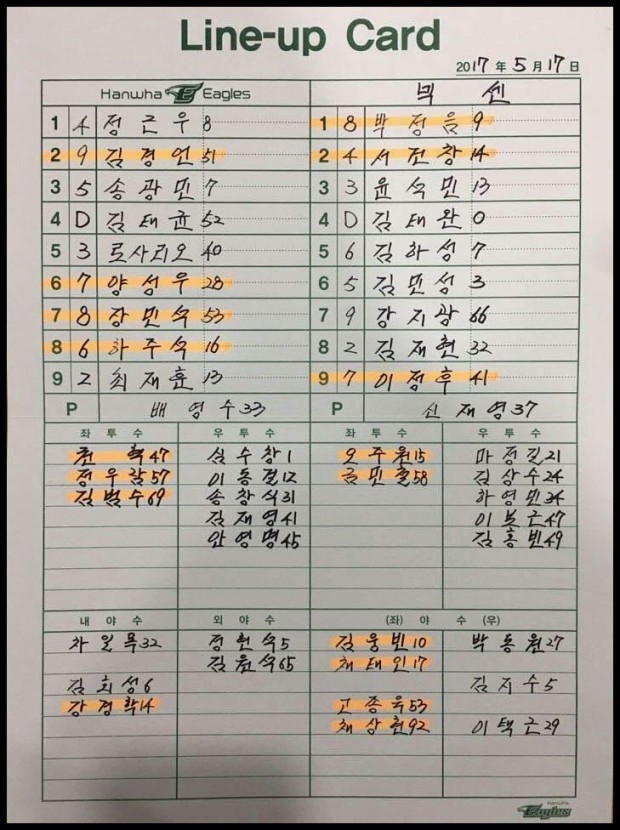 Line-up Card
2017 年 5 月 17 日
Hanwha Eagles
넥 센
1 4 정근우 8
1 8 박정음 9
2 9 김경언 51
2 4 서건창 14
3 5 송광민 7
3 3 윤석민 13
4 D 김태균 52
4 D 김태완 0
5 3 로사리오 40
5 6 김하성 7
6 7 양성우 28
6 5 김민성 3
7 8 장민석 53
7 9 장지광 66
8 6 하주석 16
8 2 김재현 32
9 2 최재훈 13
9 7 이정후 41
P 배영수 33
P 신재영 37
좌투수 우투수
좌투수 우투수
권혁 47 심수창 1
오주원 15 마정길 21
정우람 57 이동걸 12
금민철 58 김상수 24
김범수 69 송창식 31
하영민 34
김재영 41
이보근 47
안영명 45
김홍빈 49
내야수 외야수
(좌) 야 수 (우)
차일목 32 정현석 5
김웅빈 10 박동원 27
김원석 65
채태인 17
김회성 6
김지수 5
강경학 14
고종욱 53
채상현 92 이택근 29
Hanwha Eagles